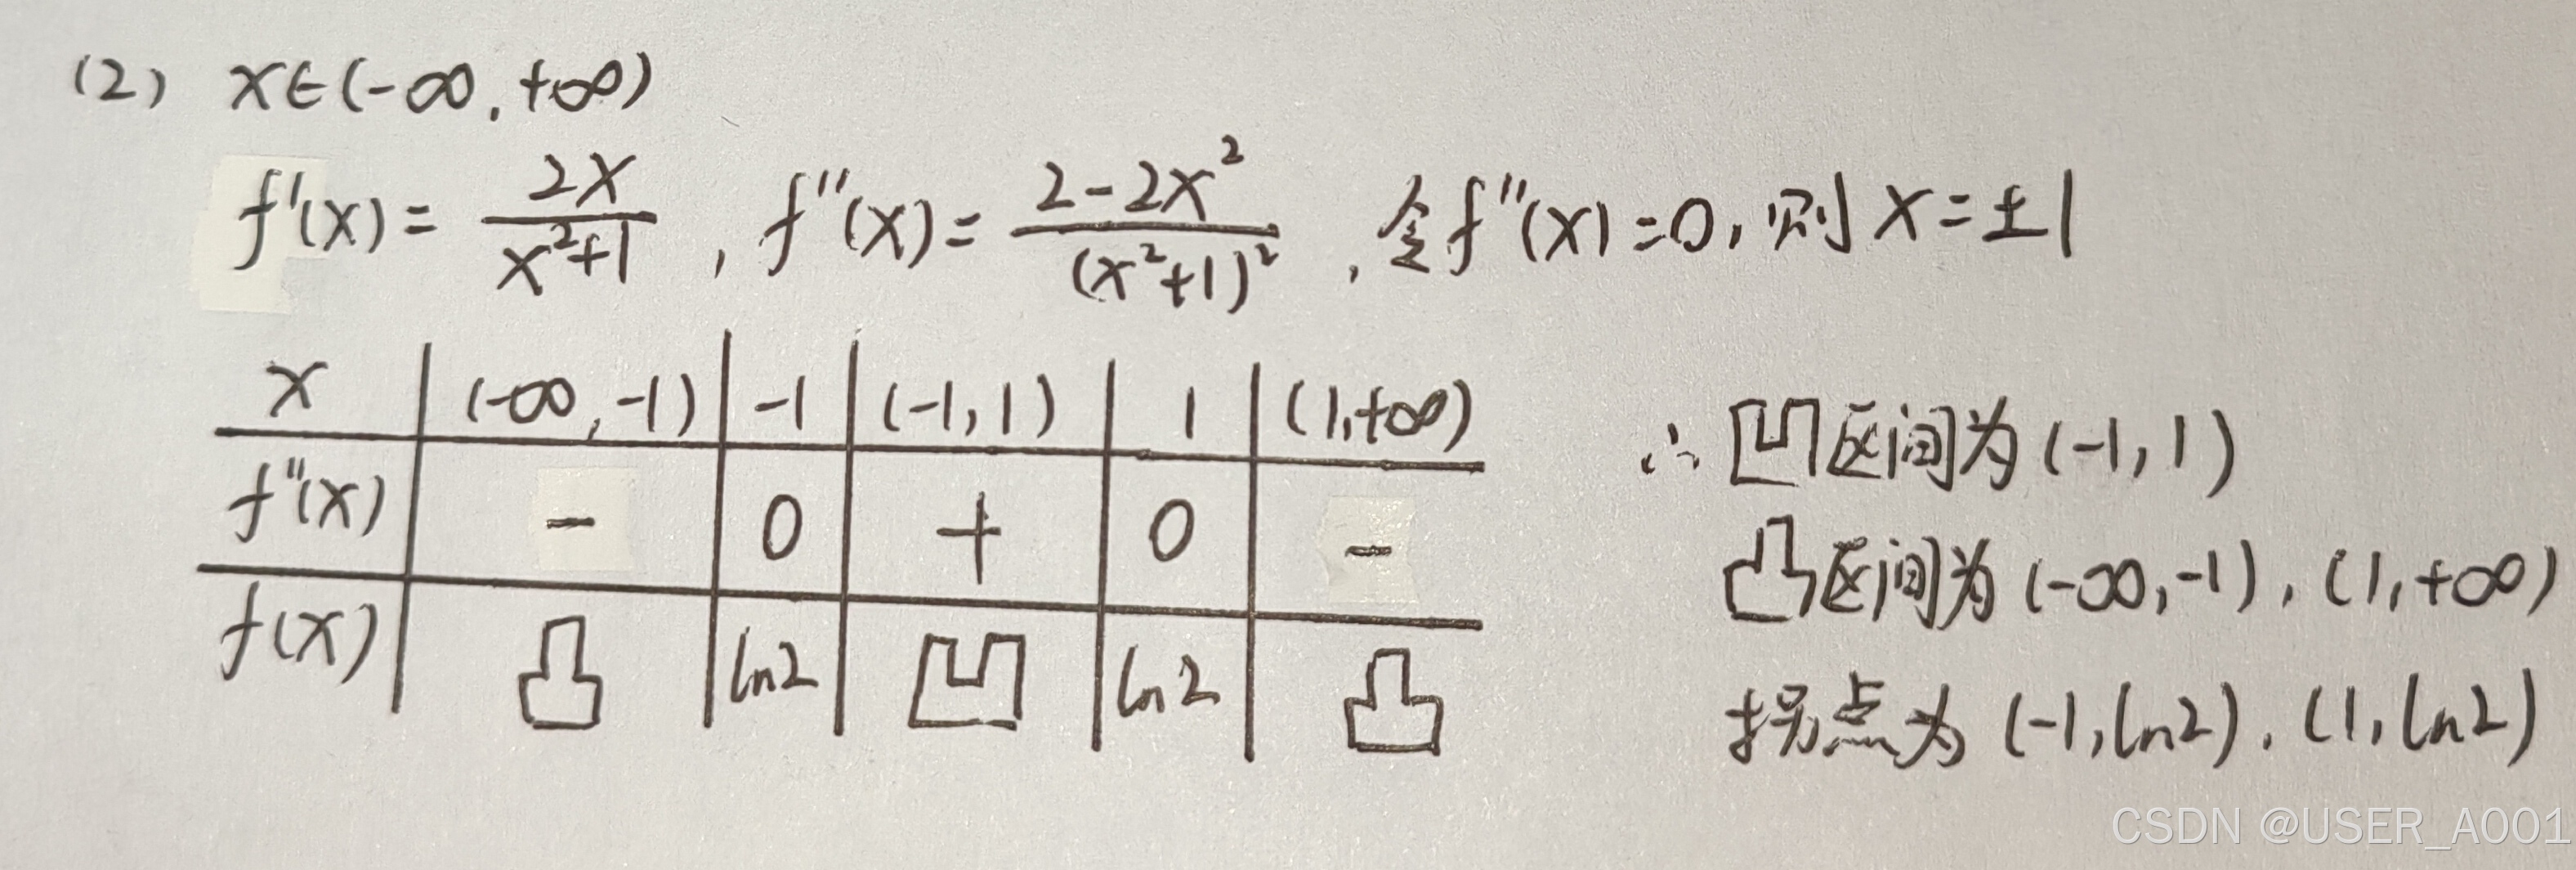 (2) x∈(-∞,+∞)
f'(x)=2x/(x²+1), f''(x)=(2-2x²)/(x²+1)², 令f''(x)=0, 则x=±1
x (-∞,-1) -1 (-1,1) 1 (1,+∞)
f''(x) - 0 + 0 -
f(x) 凸 ln2 凹 ln2 凸
∴凹区间为(-1,1)
凸区间为(-∞,-1),(1,+∞)
拐点为(-1,ln2),(1,ln2)
CSDN @USER_A001